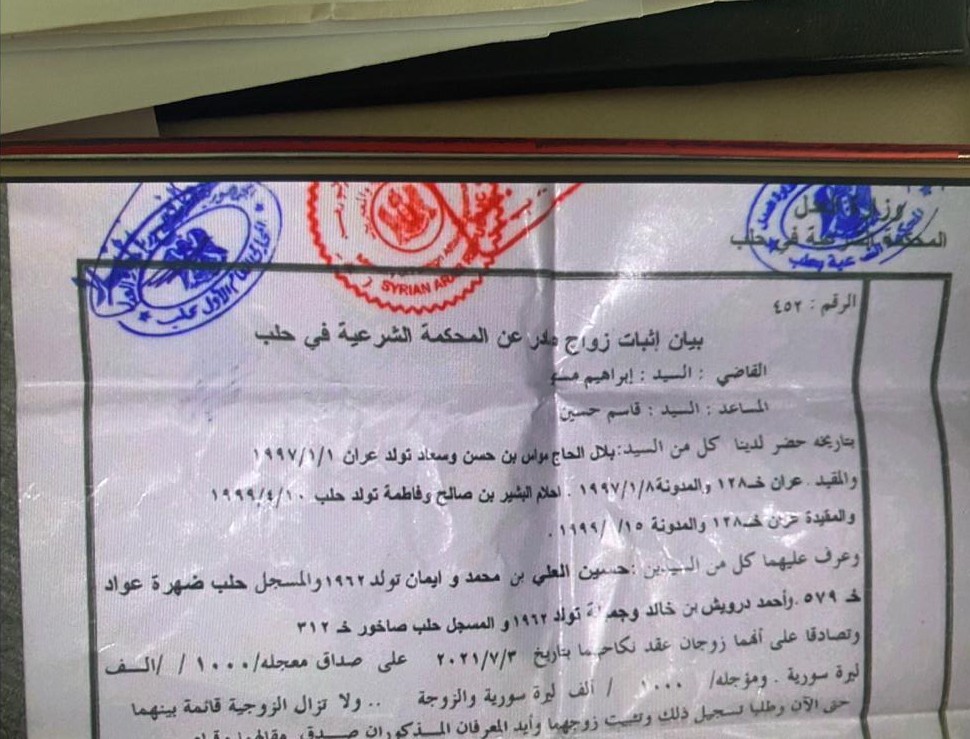 وزارة العدل
المحكمة الشرعية في حلب
SYRIAN ARAB
الرقم : ٤٥٢
بيان إثبات زواج صادر عن المحكمة الشرعية في حلب
القاضي : السيد : إبراهيم
المساعد : السيد : قاسم حسين
بتاريخه حضر لدينا كل من السيد:بلال الحاج مواس بن حسن وسعاد تولد عران ١٩٩٧/١/١
والمقيد . عران خـ١٢٨ والمدونة١٩٩٧/١/٨ . احلام البشير بن صالح وفاطمة تولد حلب ١٩٩٩/٤/١٠
والمقيدة عران خـ١٢٨ والمدونة ١٥/ /١٩٩٩ .
وعرف عليهما كل من السيدين :حسين العلي بن محمد و ايمان تولد ١٩٦٢والمسجل حلب ضهرة عواد
خـ ٥٧٩ .وأحمد درويش بن خالد وجميلة تولد ١٩٦٢ و المسجل حلب صاخور خـ ٣١٢
وتصادقا على أنهما زوجان عقد نكاحهما بتاريخ ٢٠٢١/٧/٣ على صداق معجله/١٠٠٠ / /الــف
ليرة سورية . ومؤجله/ ١٠٠٠ / ألف ليرة سورية والزوجة .. ولا تزال الزوجية قائمة بينهما
حتى الآن وطلبا تسجيل ذلك وتثبيت زوجهما وأيد المعرفان المــذكوران صـدق